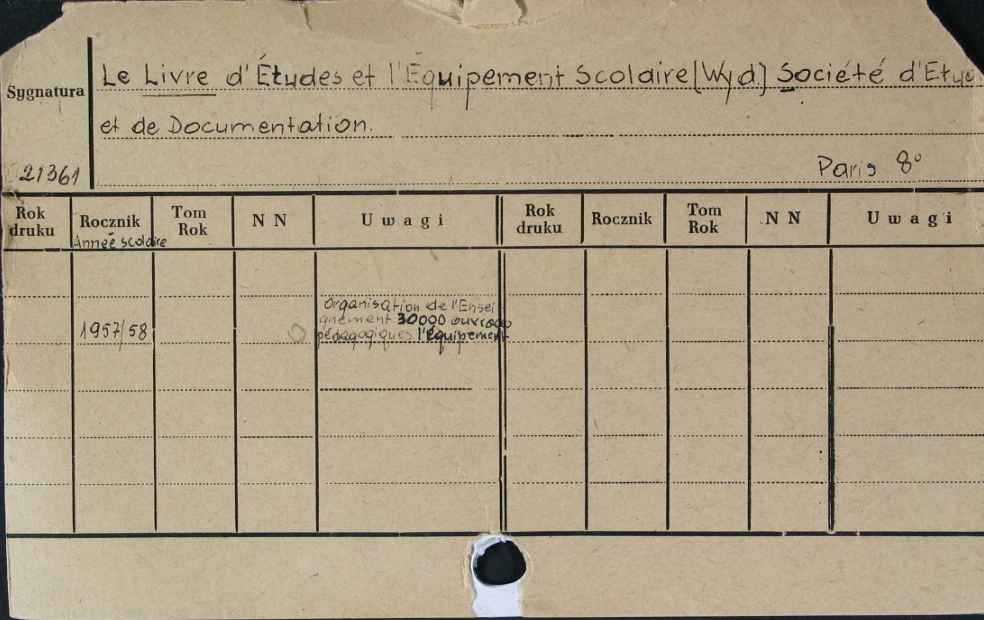 Le Livre d'Études et l'Équipement Scolaire [Wyd.] Société d'Etud
Sygnatura
et de Documentation.
21361
Paris 8°
Rok druku Rocznik Tom Rok N N Uwagi Rok druku Rocznik Tom Rok N N Uwagi
Année scolaire
Organisation de l'Ensei
1957/58 gnement 30000 ouvrages
pédagogiques l'Équipement